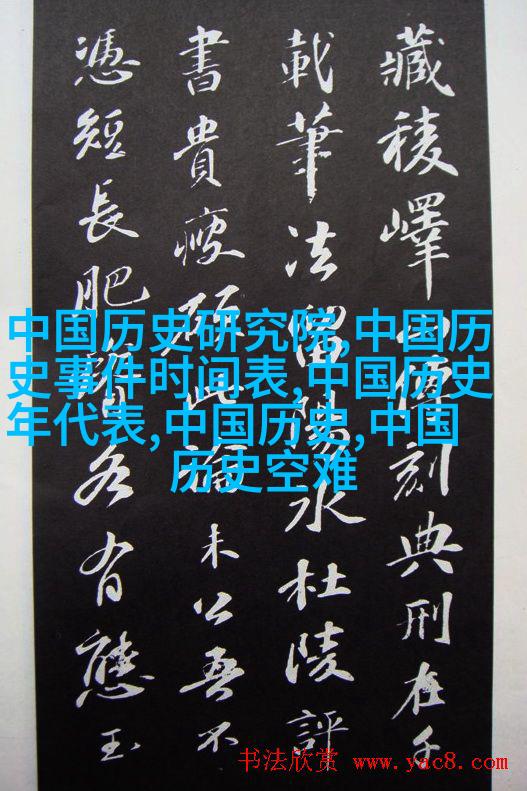 藏稜嶧山傳刻典刑在千
載筆法留陽氷杜陵評
書貴瘦硬此論未公吾不
憑短長肥瘠各有態玉
中国历史研究院,中国历
史事件时间表,中国历史
年代表,中国历史,中国
历史空难
书法欣赏 www.yac8.com